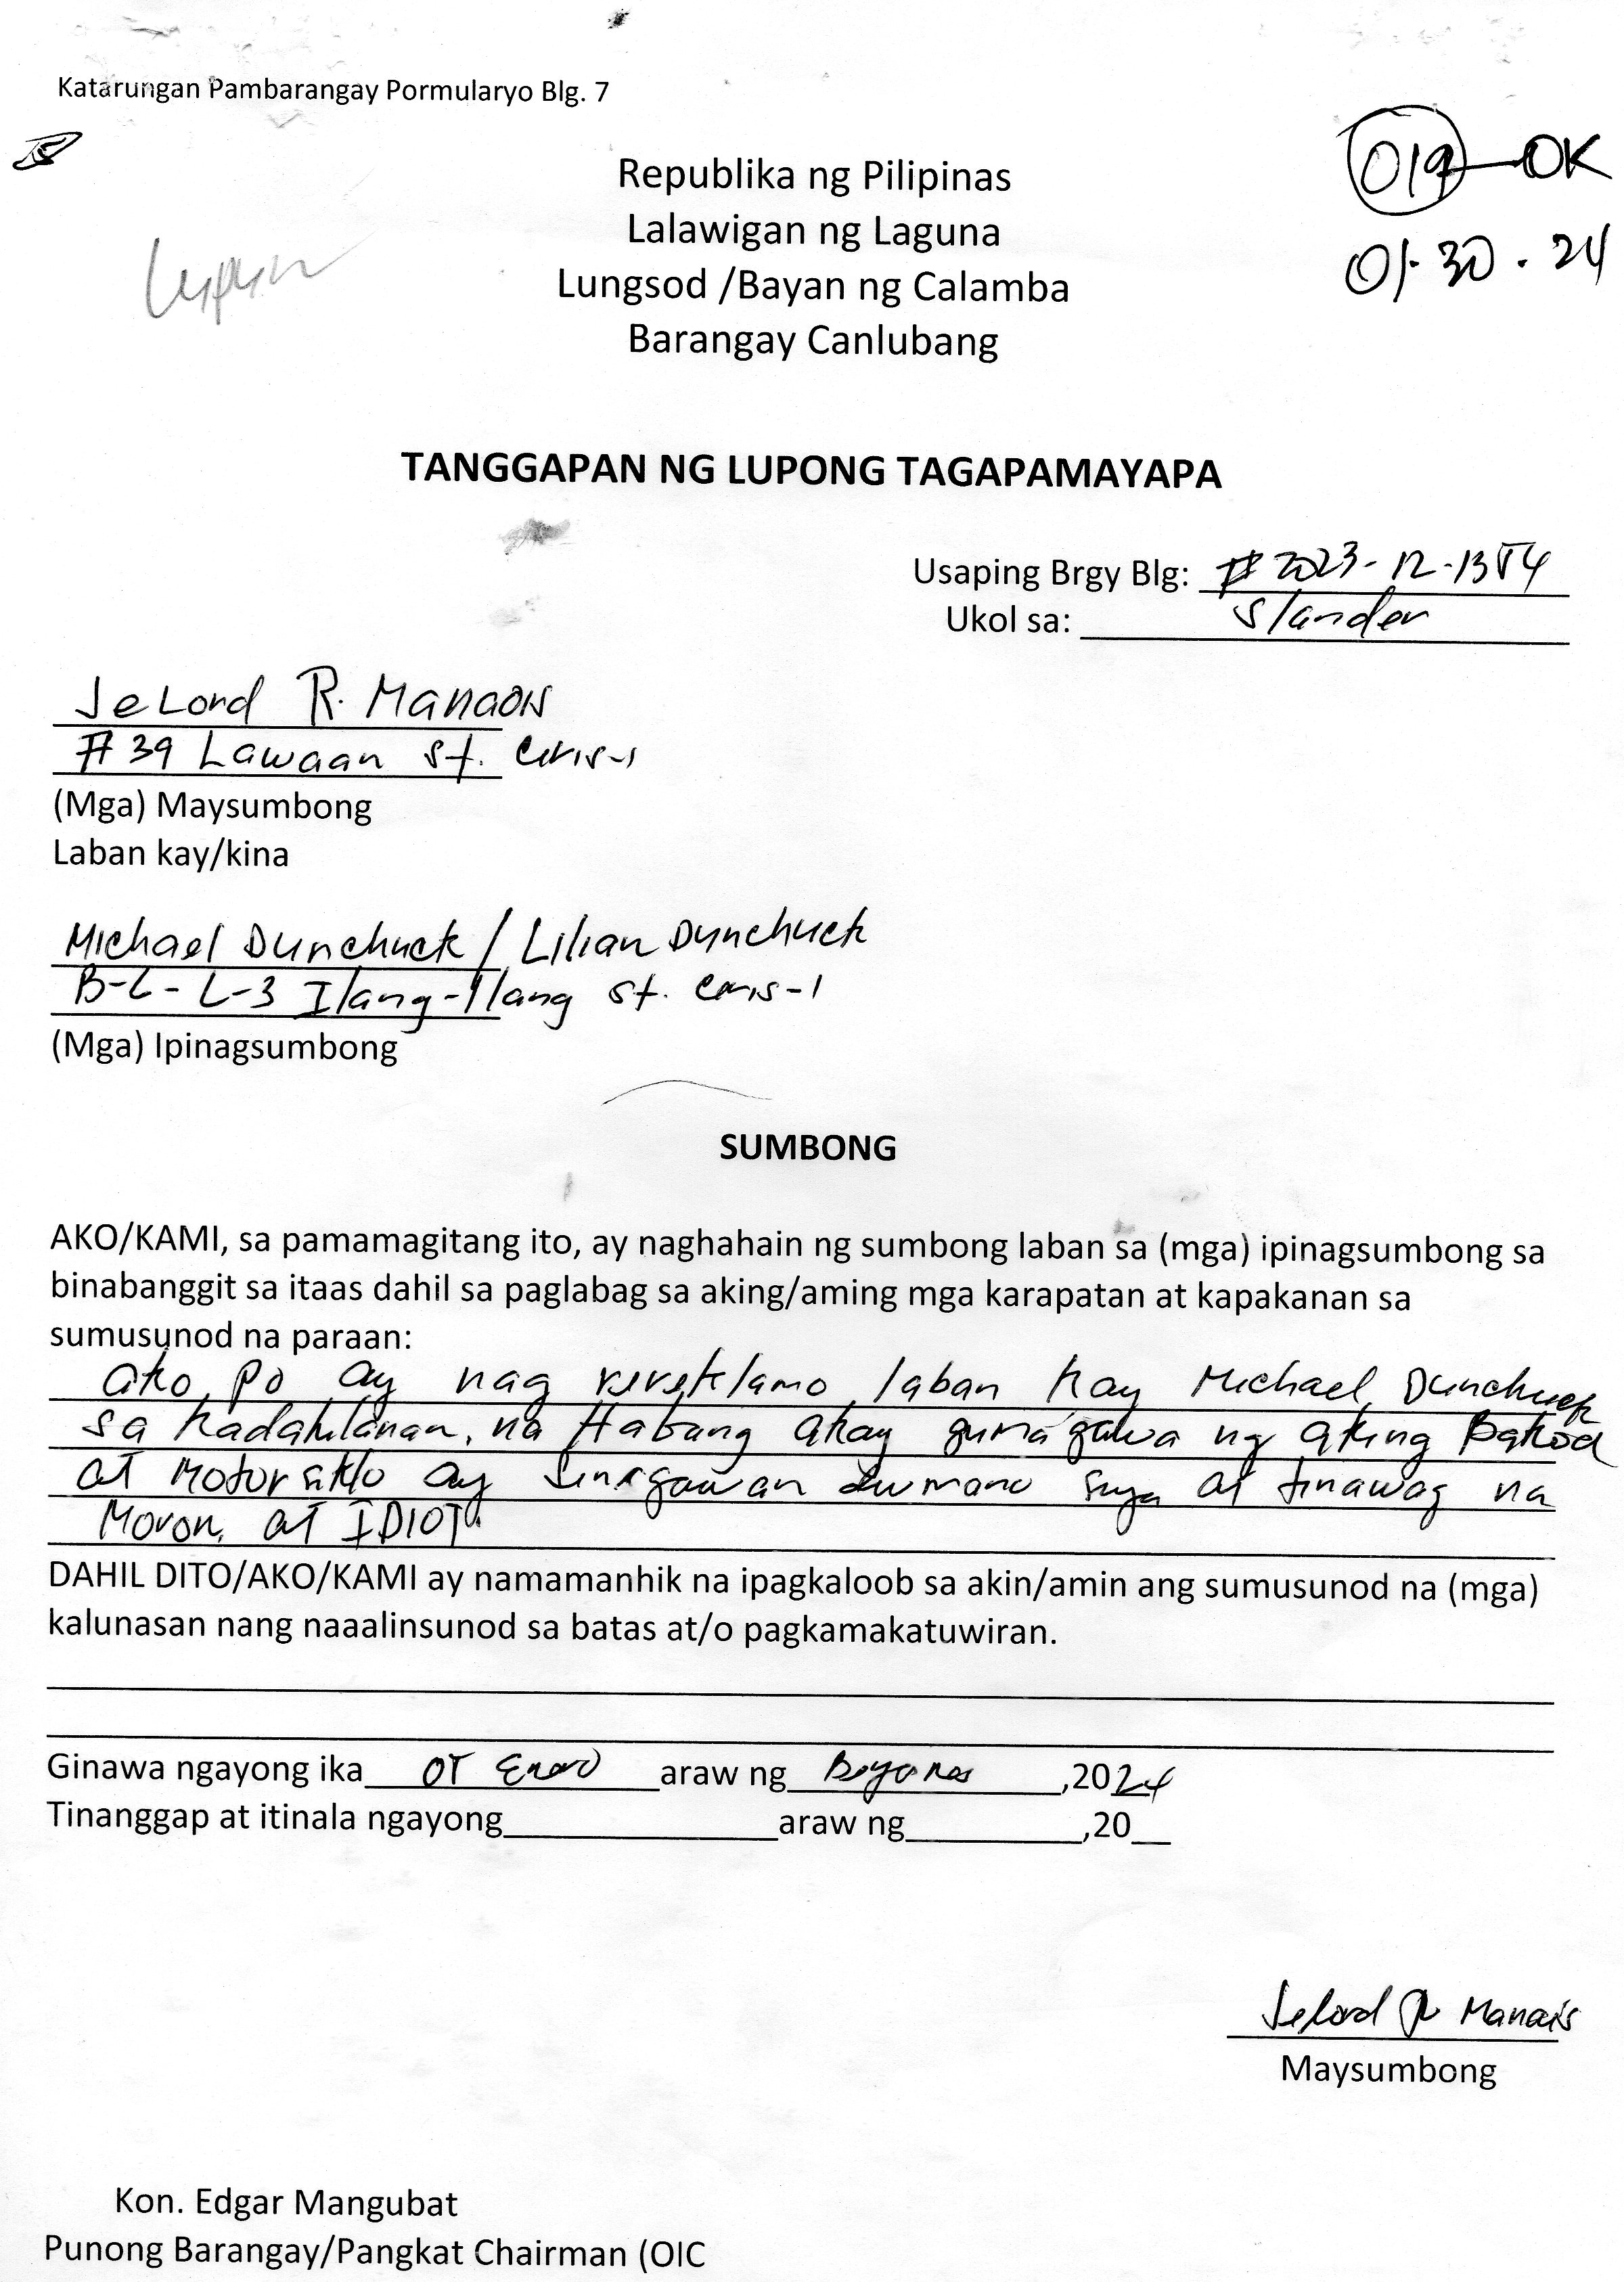 Katarungan Pambarangay Pormularyo Blg. 7
019 OK
01-30-24
Republika ng Pilipinas
Lalawigan ng Laguna
Lungsod /Bayan ng Calamba
Barangay Canlubang
Lupon
TANGGAPAN NG LUPONG TAGAPAMAYAPA
Usaping Brgy Blg: # 2023-12-1354
Ukol sa: Slander
JeLord R. Manaois
# 39 Lawaan St. Ceris-1
(Mga) Maysumbong
Laban kay/kina
Michael Dunchuck / Lilian Dunchuck
B-6-L-3 Ilang-Ilang St. Ceris-1
(Mga) Ipinagsumbong
SUMBONG
AKO/KAMI, sa pamamagitang ito, ay naghahain ng sumbong laban sa (mga) ipinagsumbong sa
binabanggit sa itaas dahil sa paglabag sa aking/aming mga karapatan at kapakanan sa
sumusunod na paraan:
ako po ay nag rereklamo laban kay Michael Dunchuck
sa kadahilanan, na Habang akay gumagawa ng aking Bakod
at Motorsiklo ay sinigawan siya at tinawag na
Moron, at IDIOT.
DAHIL DITO/AKO/KAMI ay namamanhik na ipagkaloob sa akin/amin ang sumusunod na (mga)
kalunasan nang naaalinsunod sa batas at/o pagkamakatuwiran.
Ginawa ngayong ika Enero araw ng ,2024
Tinanggap at itinala ngayong araw ng ,20
Jelord R Manaois
Maysumbong
Kon. Edgar Mangubat
Punong Barangay/Pangkat Chairman (OIC